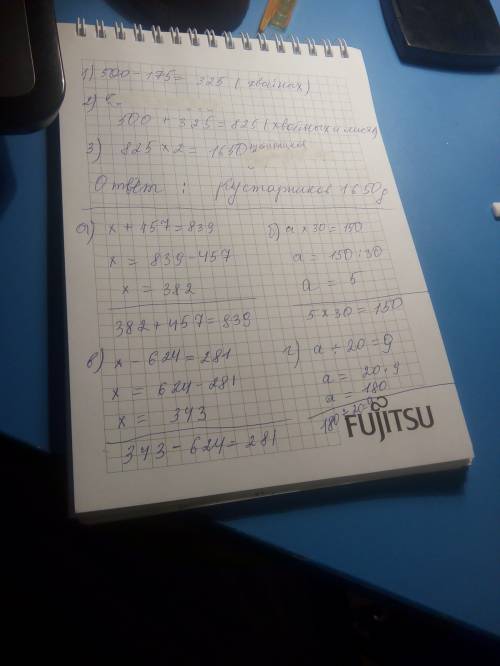 1) 500 - 175 = 325 (хвойных)
2)
500 + 325 = 825 (хвойных и листв)
3) 825 × 2 = 1650
Ответ : кустарников 1650
а) x + 457 = 839
x = 839 - 457
x = 382
382 + 457 = 839
б) a × 30 = 150
a = 150 : 30
a = 5
5 × 30 = 150
в) x - 624 = 281
x = 624 - 281
x = 343
343 - 624 = 281
г) a ÷ 20 = 9
a = 20 · 9
a = 180
FUJITSU